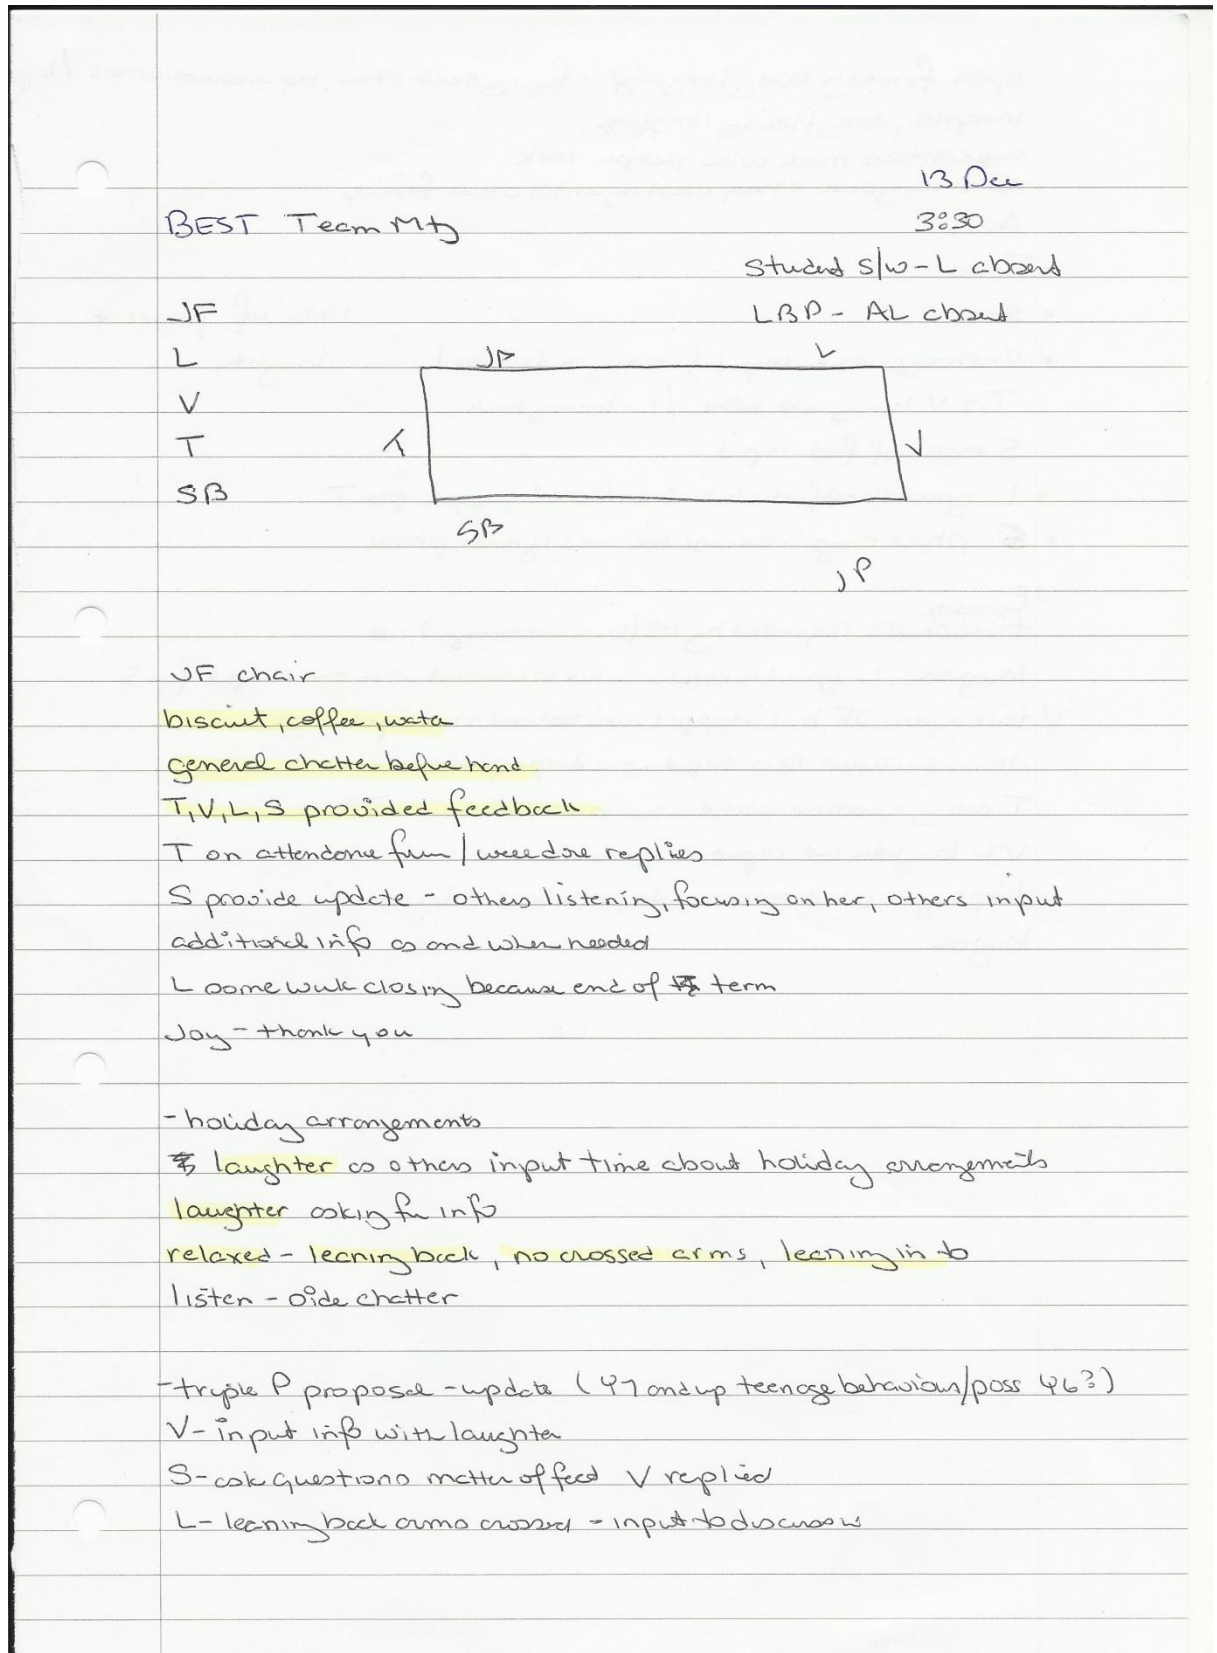 13 Dec
BEST Team Mtg
3:30
Student S/W - L absent
JF
LBP - AL absent
L
JF
L
V
T
T
V
SB
SB
JP
JF chair
biscuit, coffee, water
general chatter before hand
T, V, L, S provided feedback
T on attendance from / replies
S provide update - others listening, focusing on her, others input
additional info as and when needed
L some work closing because end of term
Joy - thank you
- holiday arrangements
laughter as others input time about holiday arrangements
laughter asking for info
relaxed - leaning back, no crossed arms, leaning in to
listen - side chatter
- triple P proposal - update (Y7 and up teenage behaviour/poss Y6?)
V - input info with laughter
S - ask questions matter of fact V replied
L - leaning back arms crossed - input to discussion